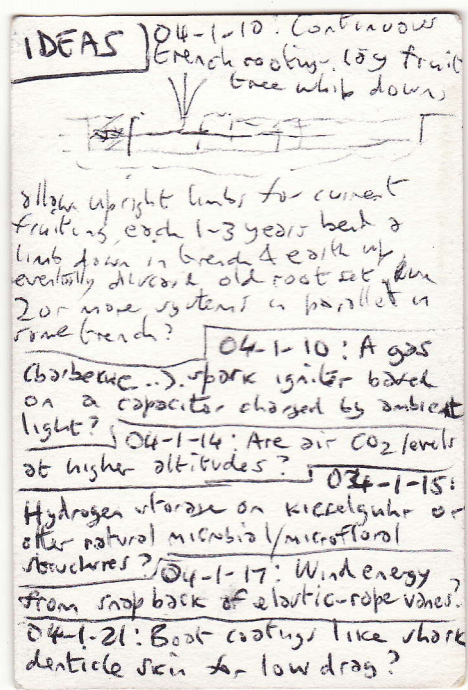 IDEAS
04-1-10: Continuous
trench rooting. Lay fruit
tree whip down,
allow upright limbs for current
fruiting, each 1-3 years bend a
limb down in trench & earth up,
eventually discard old root set, Run
2 or more systems in parallel in
same trench?
04-1-10: A gas
(barbecue...) spark igniter based
on a capacitor charged by ambient
light?
04-1-14: Are air CO2 levels
at higher altitudes?
04-1-15:
Hydrogen storage on kieselguhr or
other natural microbial/microfloral
structures?
04-1-17: Wind energy
from snap back of elastic-rope vanes?
04-1-21: Boat coatings like shark
denticle skin for low drag?